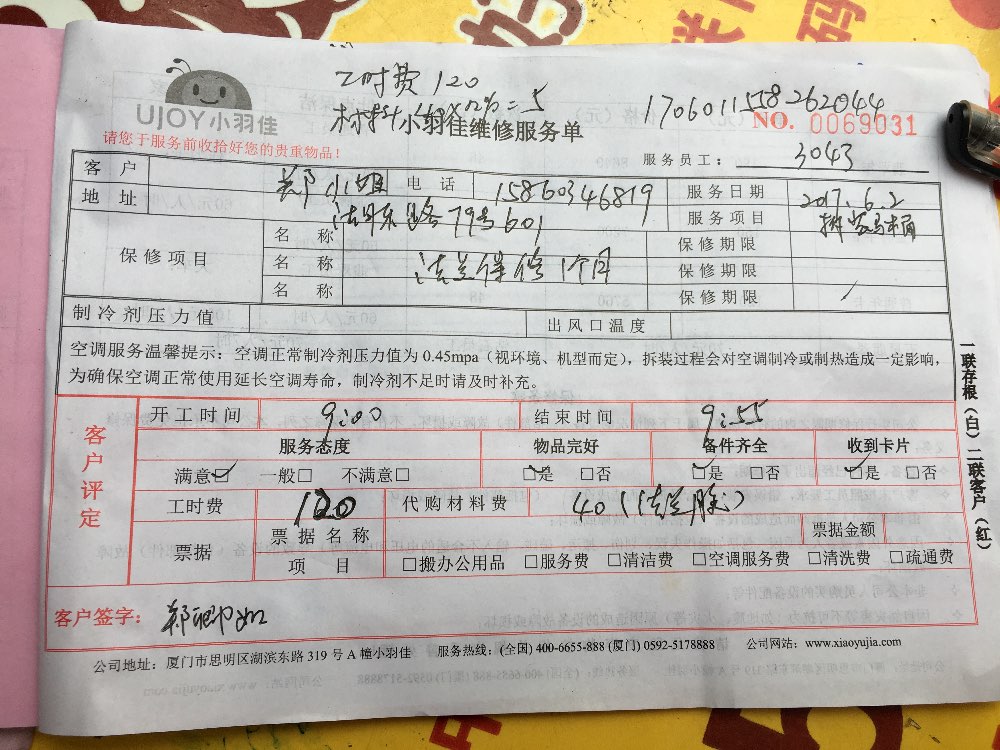 工时费 120
1706011558262044
UJOY小羽佳
小羽佳维修服务单
NO. 0069031
请您于服务前收拾好您的贵重物品！
服务员工： 3043
客户 郑小姐 电话 15860346819 服务日期 2017.6.2
地址 79号601 服务项目 拆装马桶
保修项目 名称 保修期限
名称 法兰保修1个月 保修期限
名称 保修期限
制冷剂压力值 出风口温度
空调服务温馨提示：空调正常制冷剂压力值为 0.45mpa（视环境、机型而定），拆装过程会对空调制冷或制热造成一定影响，
为确保空调正常使用延长空调寿命，制冷剂不足时请及时补充。
客户评定
开工时间 9:00 结束时间 9:55
服务态度 物品完好 备件齐全 收到卡片
满意☑ 一般□ 不满意□ ☑是 □否 ☑是 □否 ☑是 □否
工时费 120 代购材料费 40（法兰胶）
票据 票据名称 票据金额
项目 □搬办公用品 □服务费 □清洁费 □空调服务费 □清洗费 □疏通费
客户签字：
公司地址：厦门市思明区湖滨东路 319 号 A 幢小羽佳 服务热线：(全国) 400-6655-888 (厦门) 0592-5178888 公司网站：www.xiaoyujia.com
一联存根（白）二联客户（红）